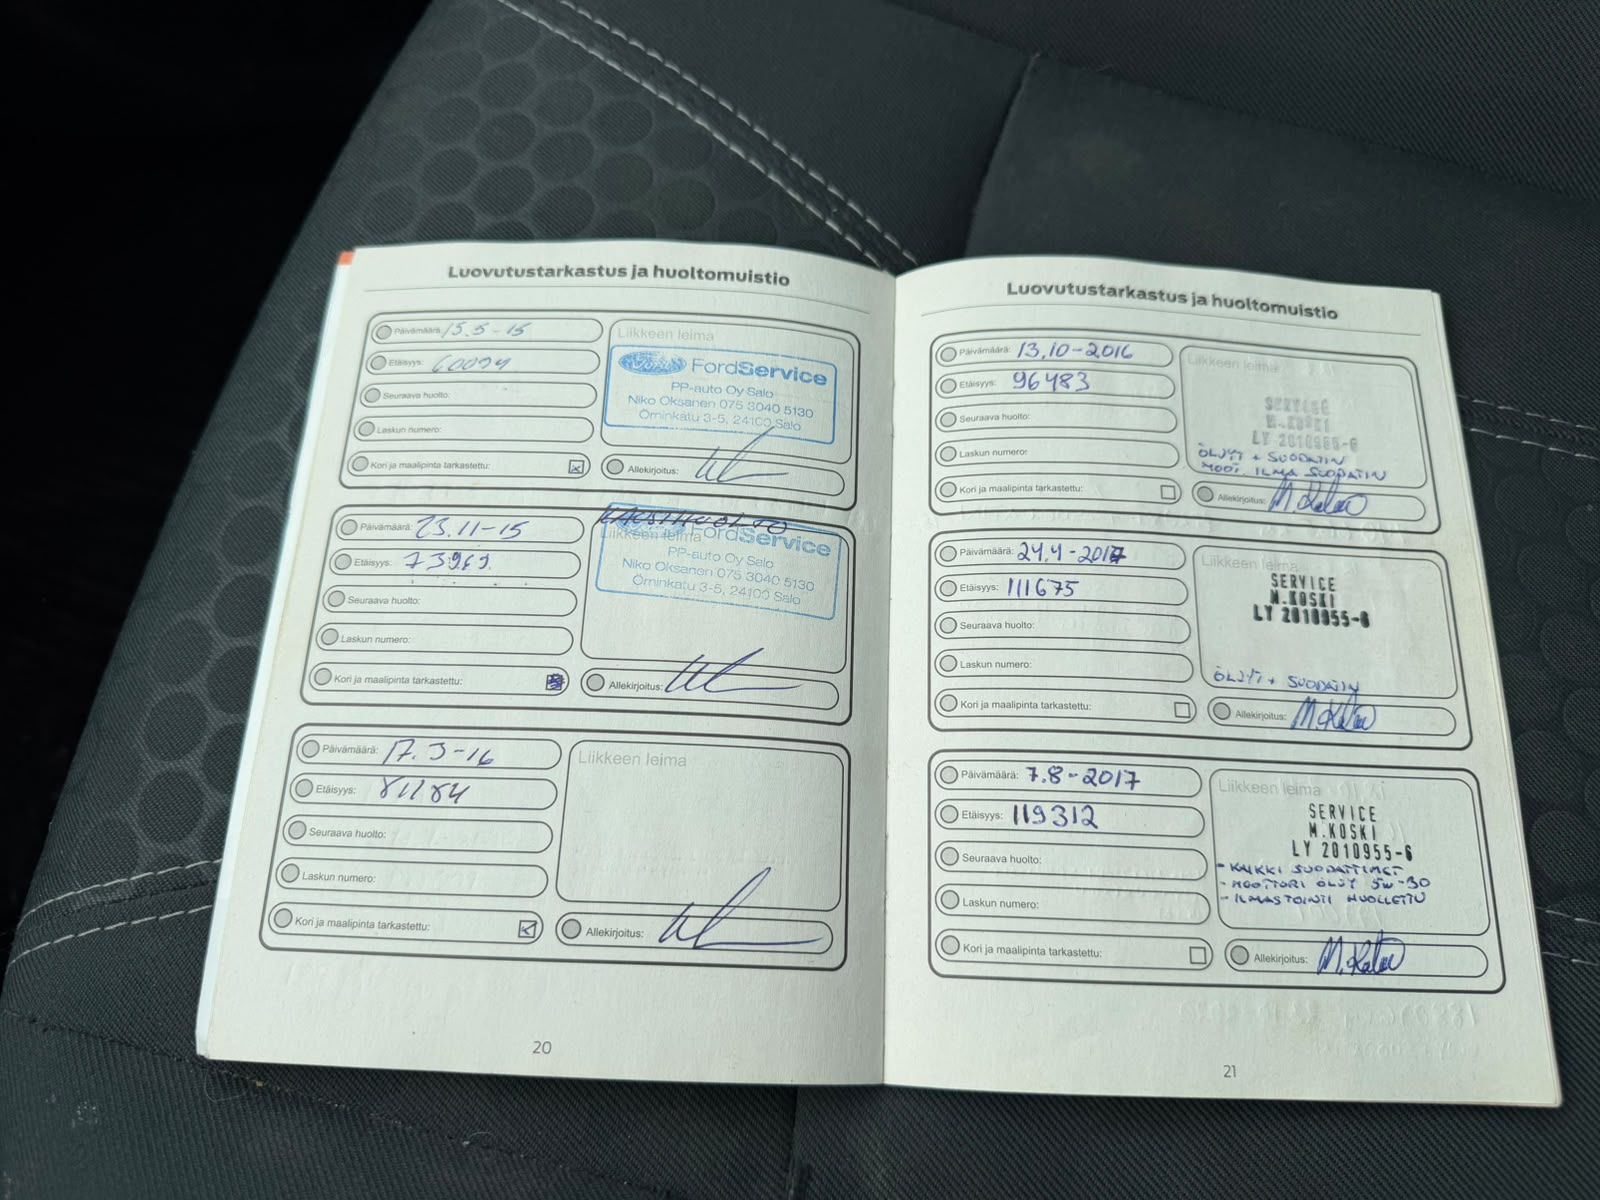 Luovutustarkastus ja huoltomuistio
Päivämäärä: 15.5-15
Etäisyys: 60094
Seuraava huolto:
Laskun numero:
Kori ja maalipinta tarkastettu:
Liikkeen leima
Ford FordService
PP-auto Oy Salo
Niko Oksanen 075 3040 5130
Örninkatu 3-5, 24100 Salo
Allekirjoitus:
Päivämäärä: 23.11-15
Etäisyys: 73969.
Seuraava huolto:
Laskun numero:
Kori ja maalipinta tarkastettu:
Liikkeen leima
FordService
PP-auto Oy Salo
Niko Oksanen 075 3040 5130
Örninkatu 3-5, 24100 Salo
Allekirjoitus:
Päivämäärä: 17.3-16
Etäisyys: 81184
Seuraava huolto:
Laskun numero:
Kori ja maalipinta tarkastettu:
Liikkeen leima
Allekirjoitus:
20
Luovutustarkastus ja huoltomuistio
Päivämäärä: 13.10-2016
Etäisyys: 96483
Seuraava huolto:
Laskun numero:
Kori ja maalipinta tarkastettu:
Liikkeen leima
SERVICE
M.KOSKI
LY 2010955-6
ÖLJYT + SUODATIN
MOOT. ILMA SUODATIN
Allekirjoitus:
Päivämäärä: 24.4-2017
Etäisyys: 111675
Seuraava huolto:
Laskun numero:
Kori ja maalipinta tarkastettu:
Liikkeen leima
SERVICE
M.KOSKI
LY 2010955-6
ÖLJYT + SUODATIN
Allekirjoitus:
Päivämäärä: 7.8-2017
Etäisyys: 119312
Seuraava huolto:
Laskun numero:
Kori ja maalipinta tarkastettu:
Liikkeen leima
SERVICE
M.KOSKI
LY 2010955-6
- KAIKKI SUODATTIMET
- MOOTTORI ÖLJY 5W-30
- ILMASTOINTI HUOLLETTU
Allekirjoitus:
21